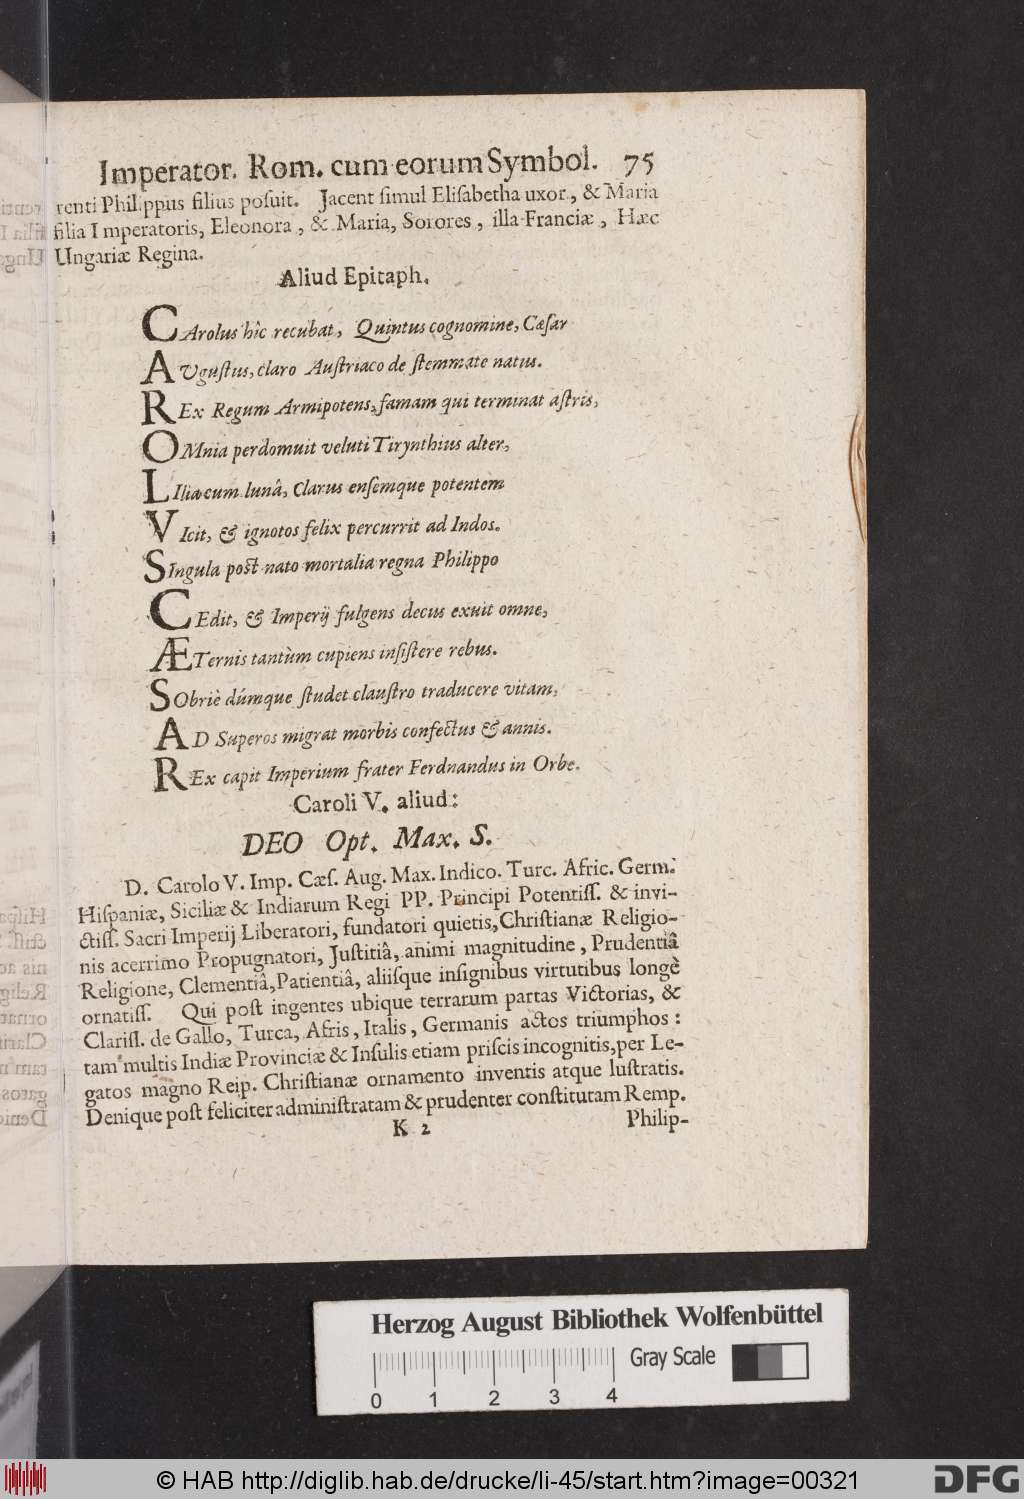 Imperator. Rom. cum eorum Symbol. 75
renti Philippus filius posuit. Jacent simul Elisabetha uxor, & Maria
filia Imperatoris, Eleonora, & Maria, Sorores, illa Franciæ, Hæc
Ungariæ Regina.
Aliud Epitaph.
CArolus hîc recubat, Quintus cognomine, Cæſar
AVguſtus, claro Auſtriaco de ſtemmate natus.
REx Regum Armipotens, famam qui terminat aſtris,
OMnia perdomuit veluti Tirynthius alter,
LIlia cum lunâ, Clarus enſemque potentem
VIcit, & ignotos felix percurrit ad Indos.
SIngula poſt nato mortalia regna Philippo
CEdit, & Imperij fulgens decus exuit omne,
ÆTernis tantùm cupiens inſiſtere rebus.
SObriè dúmque ſtudet clauſtro traducere vitam,
AD Superos migrat morbis confectus & annis.
REx capit Imperium frater Ferdnandus in Orbe.
Caroli V. aliud:
DEO Opt. Max. S.
D. Carolo V. Imp. Cæſ. Aug. Max. Indico. Turc. Afric. Germ.
Hiſpaniæ, Siciliæ & Indiarum Regi PP. Principi Potentiſſ. & invi-
ctiſſ. Sacri Imperij Liberatori, fundatori quietis, Chriſtianæ Religio-
nis acerrimo Propugnatori, Juſtitiâ, animi magnitudine, Prudentiâ
Religione, Clementiâ, Patientiâ, aliiſque inſignibus virtutibus longè
ornatiſſ. Qui poſt ingentes ubique terrarum partas Victorias, &
Clariſſ. de Gallo, Turca, Afris, Italis, Germanis actos triumphos:
tam multis Indiæ Provinciæ & Inſulis etiam priſcis incognitis, per Le-
gatos magno Reip. Chriſtianæ ornamento inventis atque luſtratis.
Denique poſt feliciter adminiſtratam & prudenter conſtitutam Remp.
K 2 Philip-
Herzog August Bibliothek Wolfenbüttel
Gray Scale
0 1 2 3 4
© HAB http://diglib.hab.de/drucke/li-45/start.htm?image=00321
DFG